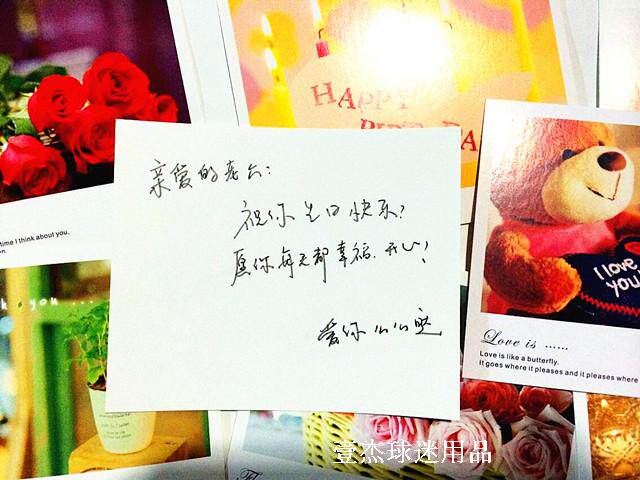 HAPPY
BIRTHDA
time I think about you,
亲爱的老公:
祝你生日快乐!
愿你每天都幸福.开心!
爱你么么哒
I love
you!
k you ...
Love is ......
Love is like a butterfly.
It goes where it pleases and it pleases where
壹杰球迷用品